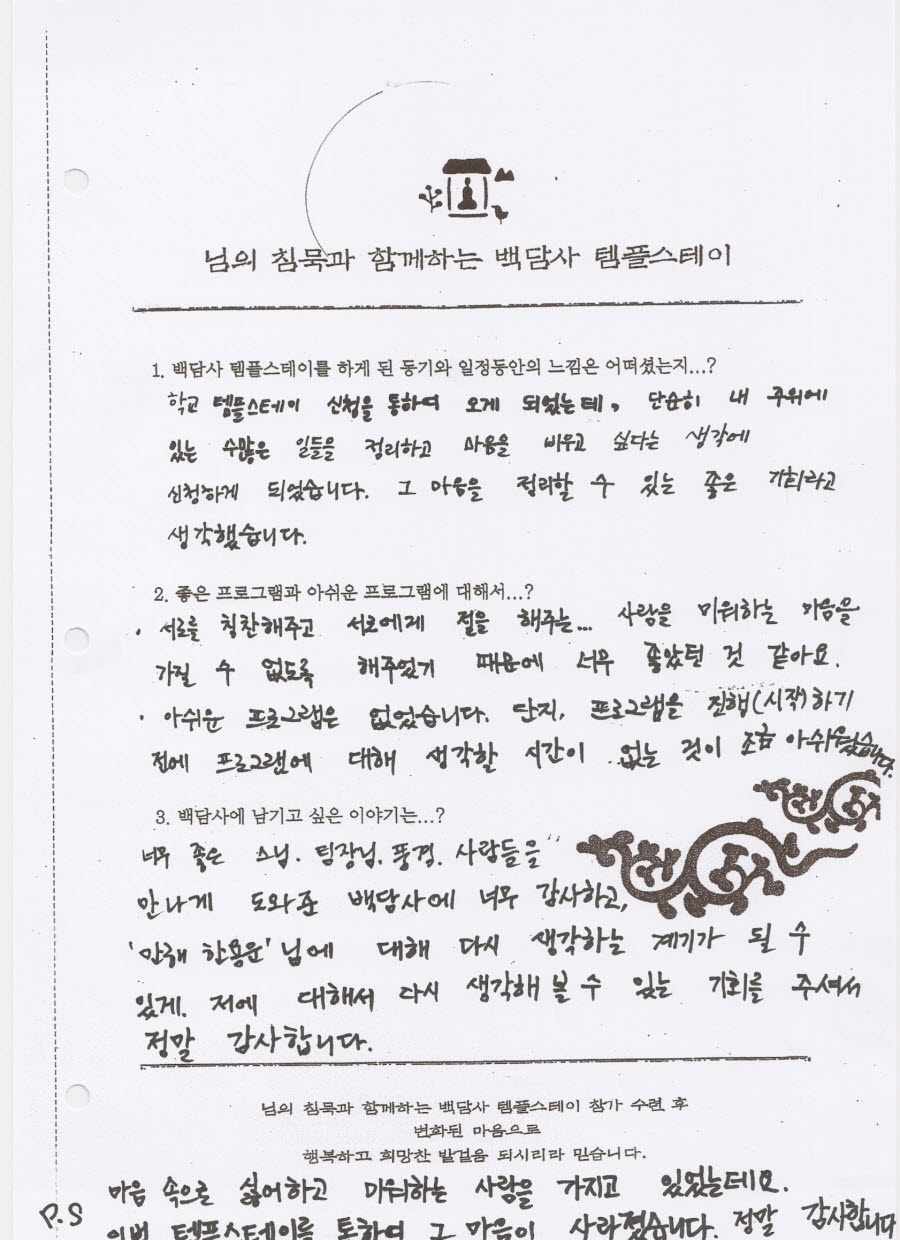 님의 침묵과 함께하는 백담사 템플스테이
1. 백담사 템플스테이를 하게 된 동기와 일정동안의 느낌은 어떠셨는지...?
학교 템플스테이 신청을 통하여 오게 되었는데, 단순히 내 주위에
있는 수많은 일들을 정리하고 마음을 비우고 싶다는 생각에
신청하게 되었습니다. 그 마음을 정리할 수 있는 좋은 기회라고
생각했습니다.
2. 좋은 프로그램과 아쉬운 프로그램에 대해서...?
· 서로를 칭찬해주고 서로에게 절을 해주는... 사람을 미워하는 마음을
가질 수 없도록 해주었기 때문에 너무 좋았던 것 같아요.
· 아쉬운 프로그램은 없었습니다. 단지, 프로그램을 진행(시작)하기
전에 프로그램에 대해 생각할 시간이 없는 것이 조금 아쉬웠습니다.
3. 백담사에 남기고 싶은 이야기는...?
너무 좋은 스님. 팀장님. 풍경. 사람들을
만나게 도와준 백담사에 너무 감사하고,
'만해 한용운'님에 대해 다시 생각하는 계기가 될 수
있게. 저에 대해서 다시 생각해 볼 수 있는 기회를 주셔서
정말 감사합니다.
님의 침묵과 함께하는 백담사 템플스테이 참가 수련 후
변화된 마음으로
행복하고 희망찬 발걸음 되시리라 믿습니다.
마음 속으로 싫어하고 미워하는 사람을 가지고 있었는데요.
P.S 이번 템플스테이를 통하여 그 마음이 사라졌습니다. 정말 감사합니다